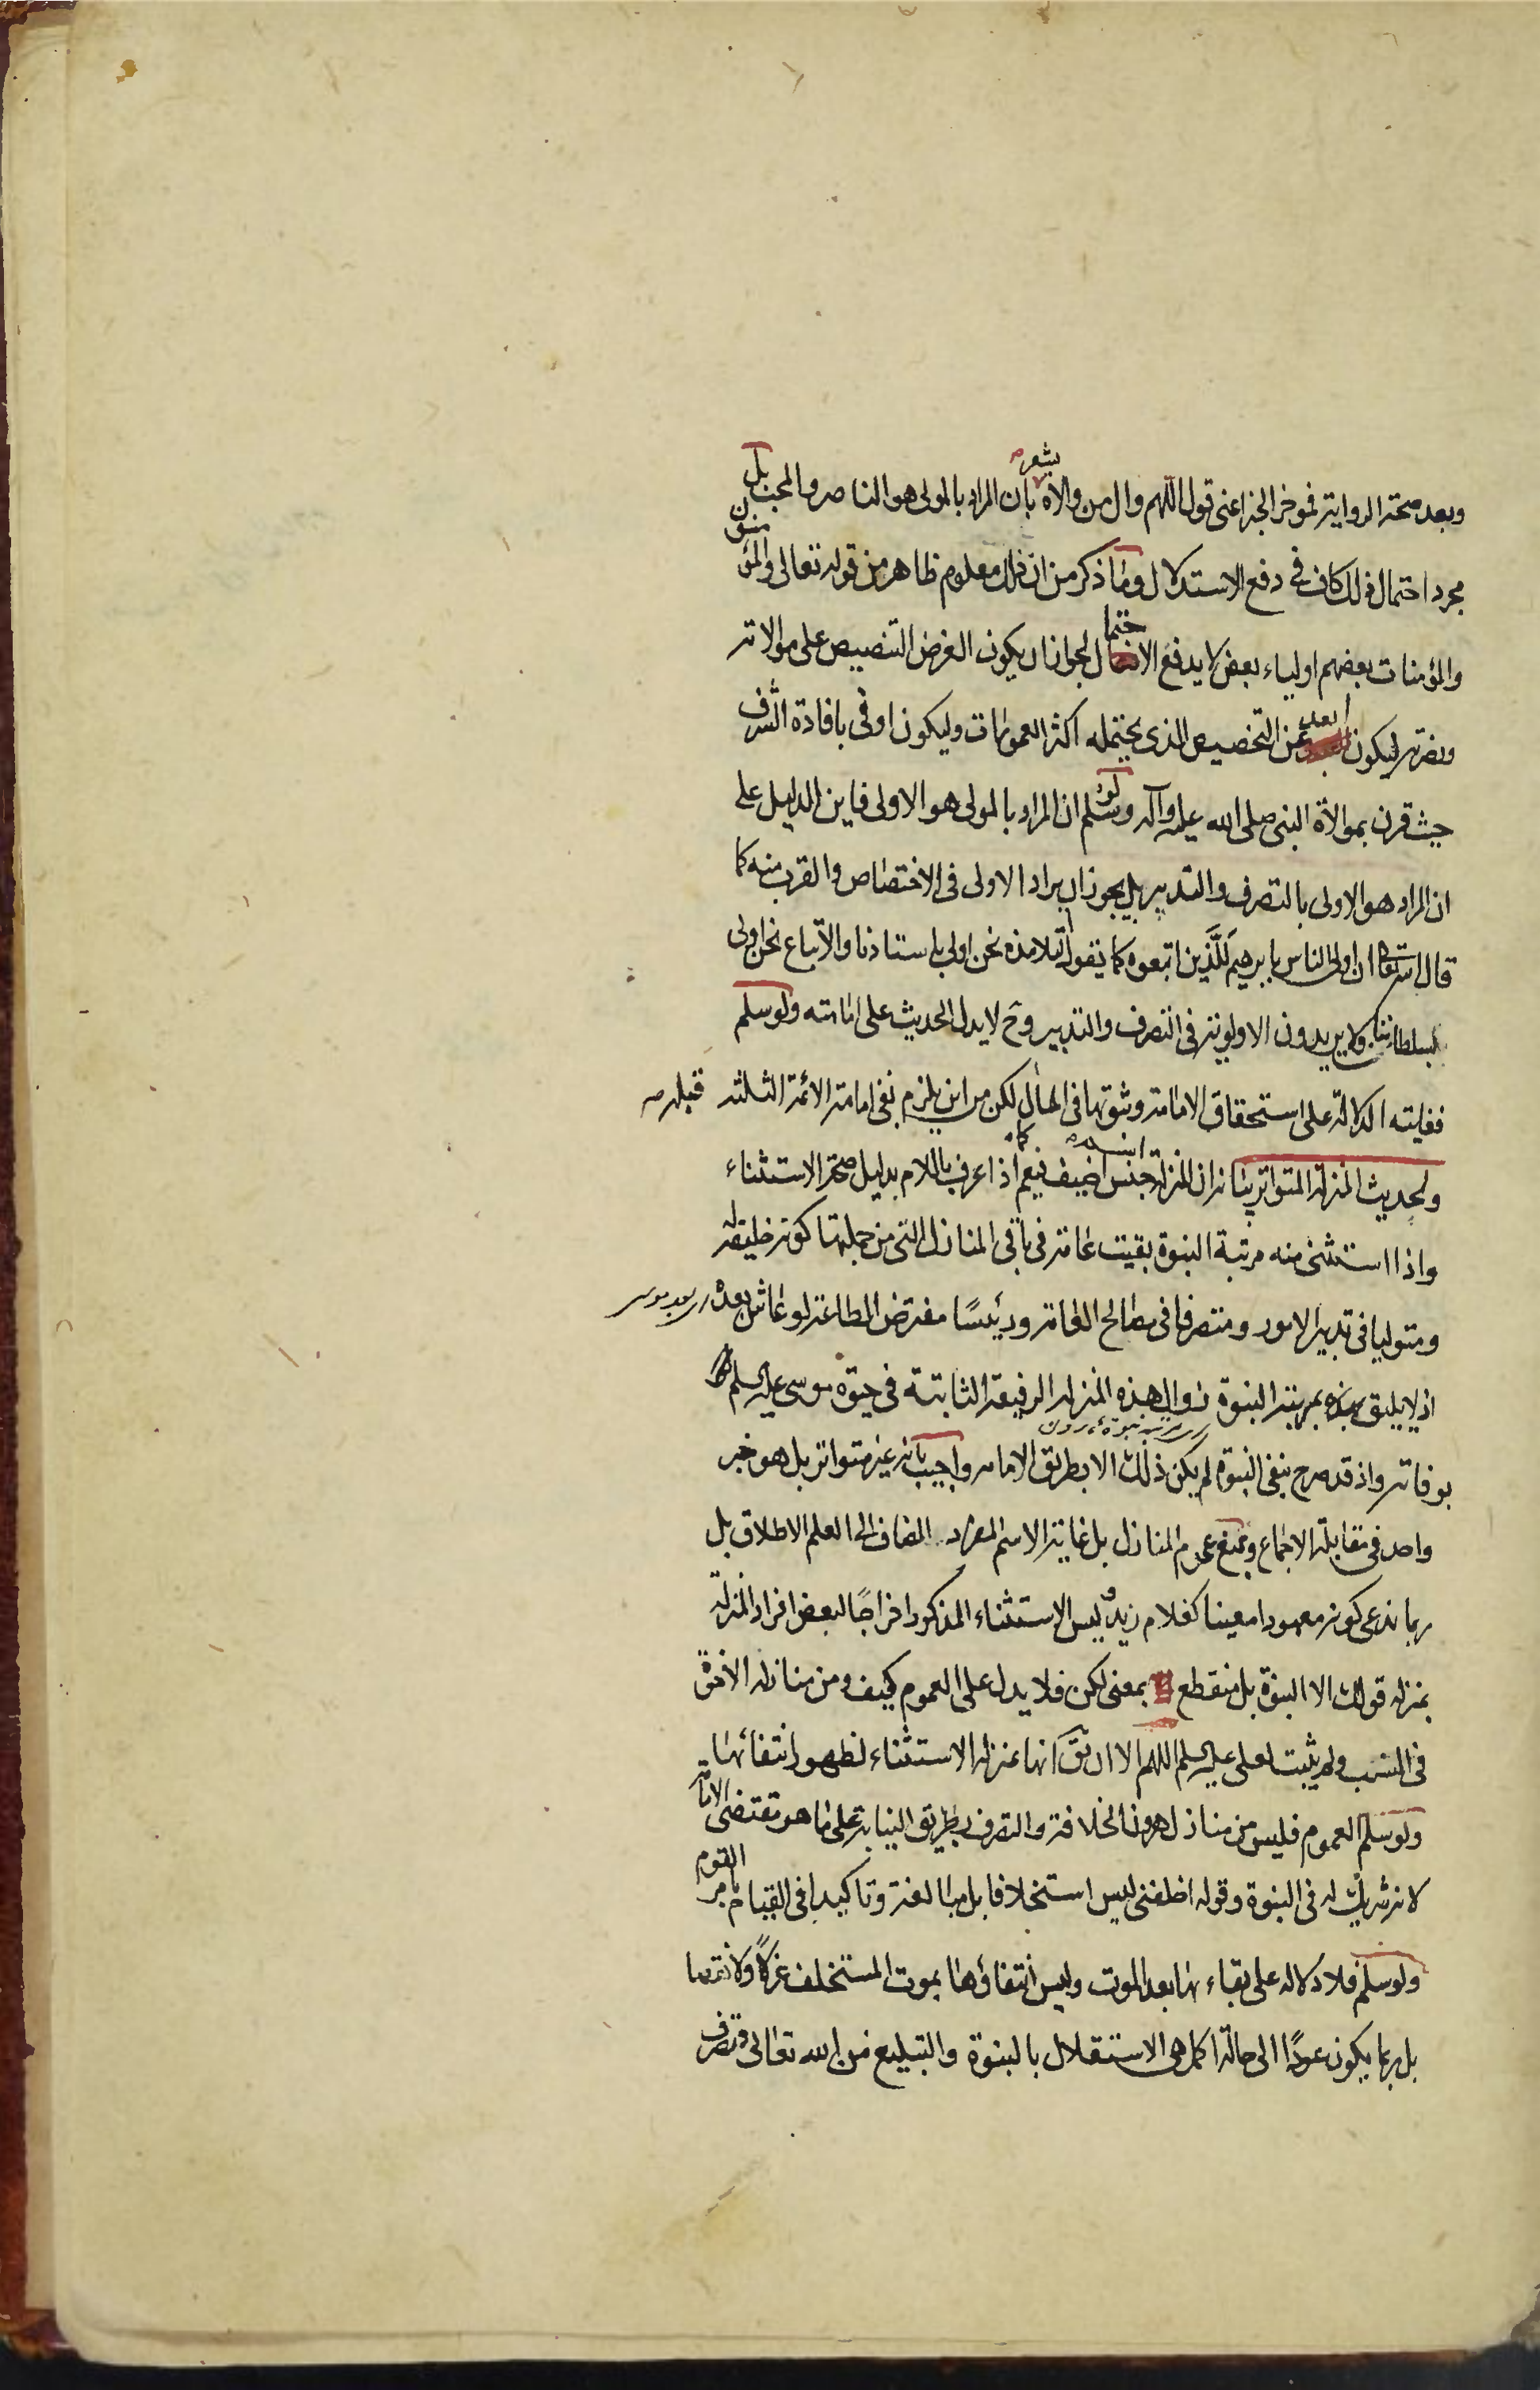 وبعد صحة الرواية فموخر الخبر اعنى قوله اللهم وال من والاه يشعر بان المراد بالمولى هو الناصر والمحب بل
مجرد احتمال ذلك كاف فى دفع الاستدلال وما ذكر من ان ذلك معلوم ظاهر من قوله تعالى والمؤمنون
والمؤمنات بعضهم اولياء بعض لا يدفع الاحتمال لجواز ان يكون الغرض التنصيص على موالاته
ونصرته ليكون ابعد عن التخصيص الذى يحتمله اكثر العمومات وليكون اوفى بافادة الشرف
حيث قرن بموالاة النبى صلى الله عليه وآله ولو سلم ان المراد بالمولى هو الاولى فاين الدليل على
ان المراد هو الاولى بالتصرف والتدبير بل يجوز ان يراد الاولى فى الاختصاص والقرب منه كما
قال الله تعالى ان اولى الناس بابرهيم للذين اتبعوه كما يقول التلامذه نحن اولى باستاذنا والاتباع نحن اولى
بسلطاننا ولا يريدون الاولوية فى التصرف والتدبير وح لا يدل الحديث على امامته ولو سلم
فغايته الدلالة على استحقاق الامامة وثبوتها فى المال لكن من اين يلزم نفى امامة الائمة الثلثه قبله صـ
ولحديث المنزلة المتواتر بيانه ان المنزلة اسم جنس اضيف فيعم كما اذا عرف باللام بدليل صحة الاستثناء
واذا استثنى منه مرتبة النبوة بقيت عامة فى باقى المنازل التى من جملتها كونه خليفة له
ومتوليا فى تدبير الامور ومتصرفا فى مصالح العامة ورئيسًا مفترض الطاعة لو عاش بعده بعد موسى
اذ لا يليق بمرتبة النبوة زوال هذه المنزلة الرفيعة الثابتة فى حيوة موسى عليه السلم
بوفاته واذ قد صرح بنفى النبوة لم يكن ذلك الا بطريق الامامه واجيب بانه غير متواتر بل هو خبر
واحد فى مقابلة الاجماع وبمنع عموم المنازل بل غاية الاسم المفرد المضاف الى العلم الاطلاق بل
ربما ندعى كونه معهودا معينا كغلام زيد وليس الاستثناء المذكور اخراجًا لبعض افراد المنزلة
بمنزلة قولك الا النبوة بل منقطع بمعنى لكن فلا يدل على العموم كيف ومن منازله الاخوة
فى النسب ولم يثبت لعلى عليه السلم اللهم الا ان يق انها بمنزلة الاستثناء لظهور انتفائها
ولو سلم العموم فليس من منازل هرون الخلافة والتصرف بطريق النيابة على ما هو مقتضى الامامة
لانه شريك له فى النبوة وقوله اخلفنى ليس استخلافا بل مبالغة وتاكيدا فى القيام بامر القوم
ولو سلم فلا دلاله على بقاءها بعد الموت وليس انتفاؤها بموت المستخلف عزلًا ولا نقصا
بل ربما يكون عودًا الى حالة اكمل هى الاستقلال بالنبوة والتبليغ من الله تعالى وتصرف